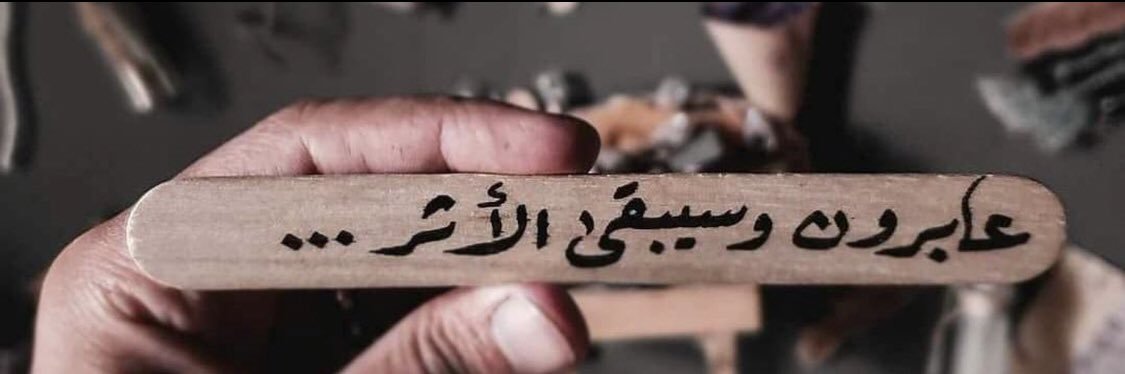 عابرون وسيبقى الأثر ...